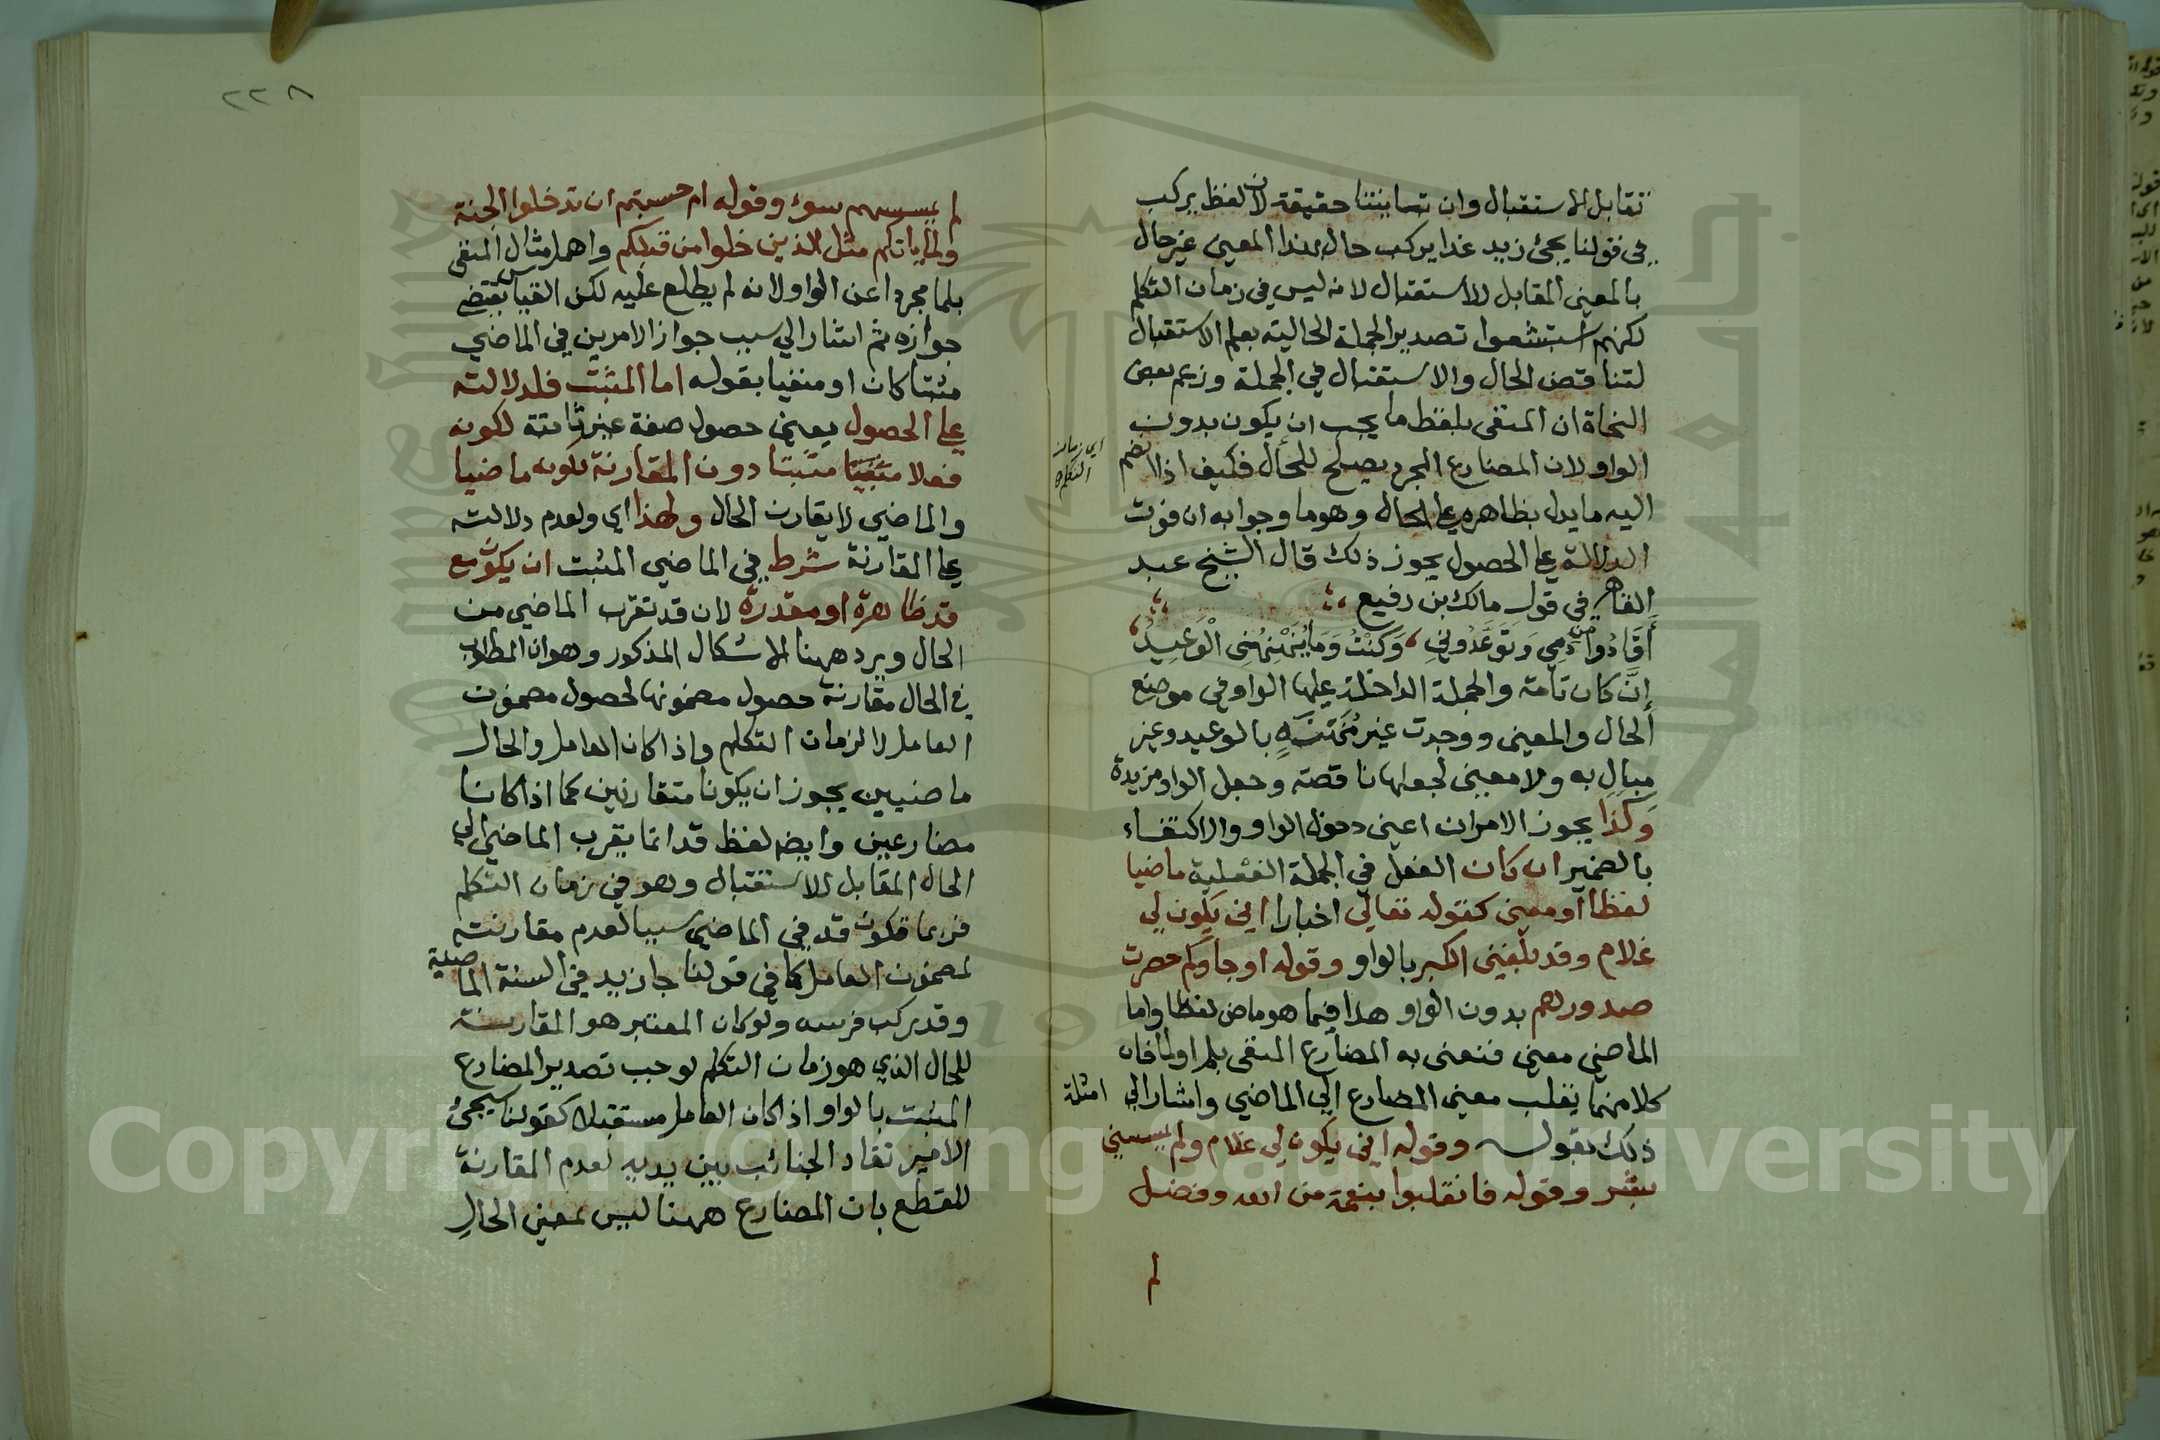 تقابل الاستقبال وان تباينتا حقيقة لان لفظ يركب
في قولنا يجئ زيد غدا يركب حال بهذا المعنى غير حال
بالمعنى المقابل للاستقبال لانه ليس في زمان التكلم
لكنهم استبشعوا تصدير الجملة الحالية بعلم الاستقبال
لتناقض الحال والاستقبال في الجملة وزعم بعض
النحاة ان المنفى بلفظ ما يجب ان يكون بدون
الواو لان المضارع المجرد يصلح للحال فكيف اذا انضم
اي زمان
التكلم
اليه ما يدل بظاهره على الحال وهو ما وجوابه ان فوت
الدلالة على الحصول يجوز ذلك قال الشيخ عبد
القاهر في قول مالك بن رفيع
أَقَادُوا من دمي وَتَوَعَّدُونِي وَكُنْتُ وَمَا يُنَهْنِهُنِي الْوَعِيدُ
إنَّ كان تامة والجملة الداخلة عليها الواو في موضع
الحال والمعنى ووجدت غير مُنَهْنَهٍ بالوعيد وغير
مبالٍ به ولا معنى لجعلها ناقصة وجعل الواو مزيدة
وَكَذَا يجوز الامران اعنى دخول الواو والاكتفاء
بالضمير ان كان الفعل في الجملة الفعلية ماضيا
لفظا او معنى كقوله تعالى اخبارا انى يكون لي
غلام وقد بلغني الكبر بالواو وقوله او جاؤكم حصرت
صدورهم بدون الواو هذا فيما هو ماض لفظا واما
الماضي معنى فنعنى به المضارع المنفى بلم او لما فان
كلا منهما يقلب معنى المضارع الى الماضي واشار الى امثلة
ذلك بقوله وقوله انى يكون لي غلام ولم يمسسني
بشر وقوله فانقلبوا بنعمة من الله وفضل
لم
٢٢٨
لم يمسسهم سوء وقوله ام حسبتم ان تدخلوا الجنة
ولما يأتكم مثل الذين خلوا من قبلكم واهمل مثال المنفى
بلما مجردا عن الواو لانه لم يطلع عليه لكن القياس يقتضى
جوازه ثم اشار الى سبب جواز الامرين في الماضي
مثبتا كان او منفيا بقوله اما المثبت فلدلالته
على الحصول يعنى حصول صفة غير ثابتة لكونه
فعلا مثبتا دون المقارنة لكونه ماضيا
والماضي لا يقارن الحال ولهذا اي ولعدم دلالته
على المقارنة شرط في الماضي المثبت ان يكون مع
قد ظاهرة او مقدرة لان قد تقرب الماضي من
الحال ويرد ههنا الاشكال المذكور وهو ان المطلوب
في الحال مقارنة حصول مضمونها لحصول مضمون
العامل لا لزمان التكلم واذا كان العامل والحال
ماضيين يجوز ان يكونا متقارنين كما اذا كانا
مضارعين وايضا لفظ قد انما يقرب الماضي الى
الحال المقابل للاستقبال وهو في زمان التكلم
فربما تكون قد في الماضي سببا لعدم مقارنته
لمضمون العامل كما في قولنا جا زيد في السنة الماضية
وقد يركب فرسه ولو كان المعتبر هو المقارنة
للحال الذي هو زمان التكلم لوجب تصدير المضارع
المثبت بالواو اذا كان العامل مستقبلا كقولنا سيجئ
الامير تقاد الجنائب بين يديه لعدم المقارنة
للقطع بان المضارع ههنا ليس بمعنى الحالِ
Copyright © King Saud University
جامعة الملك سعود
1957